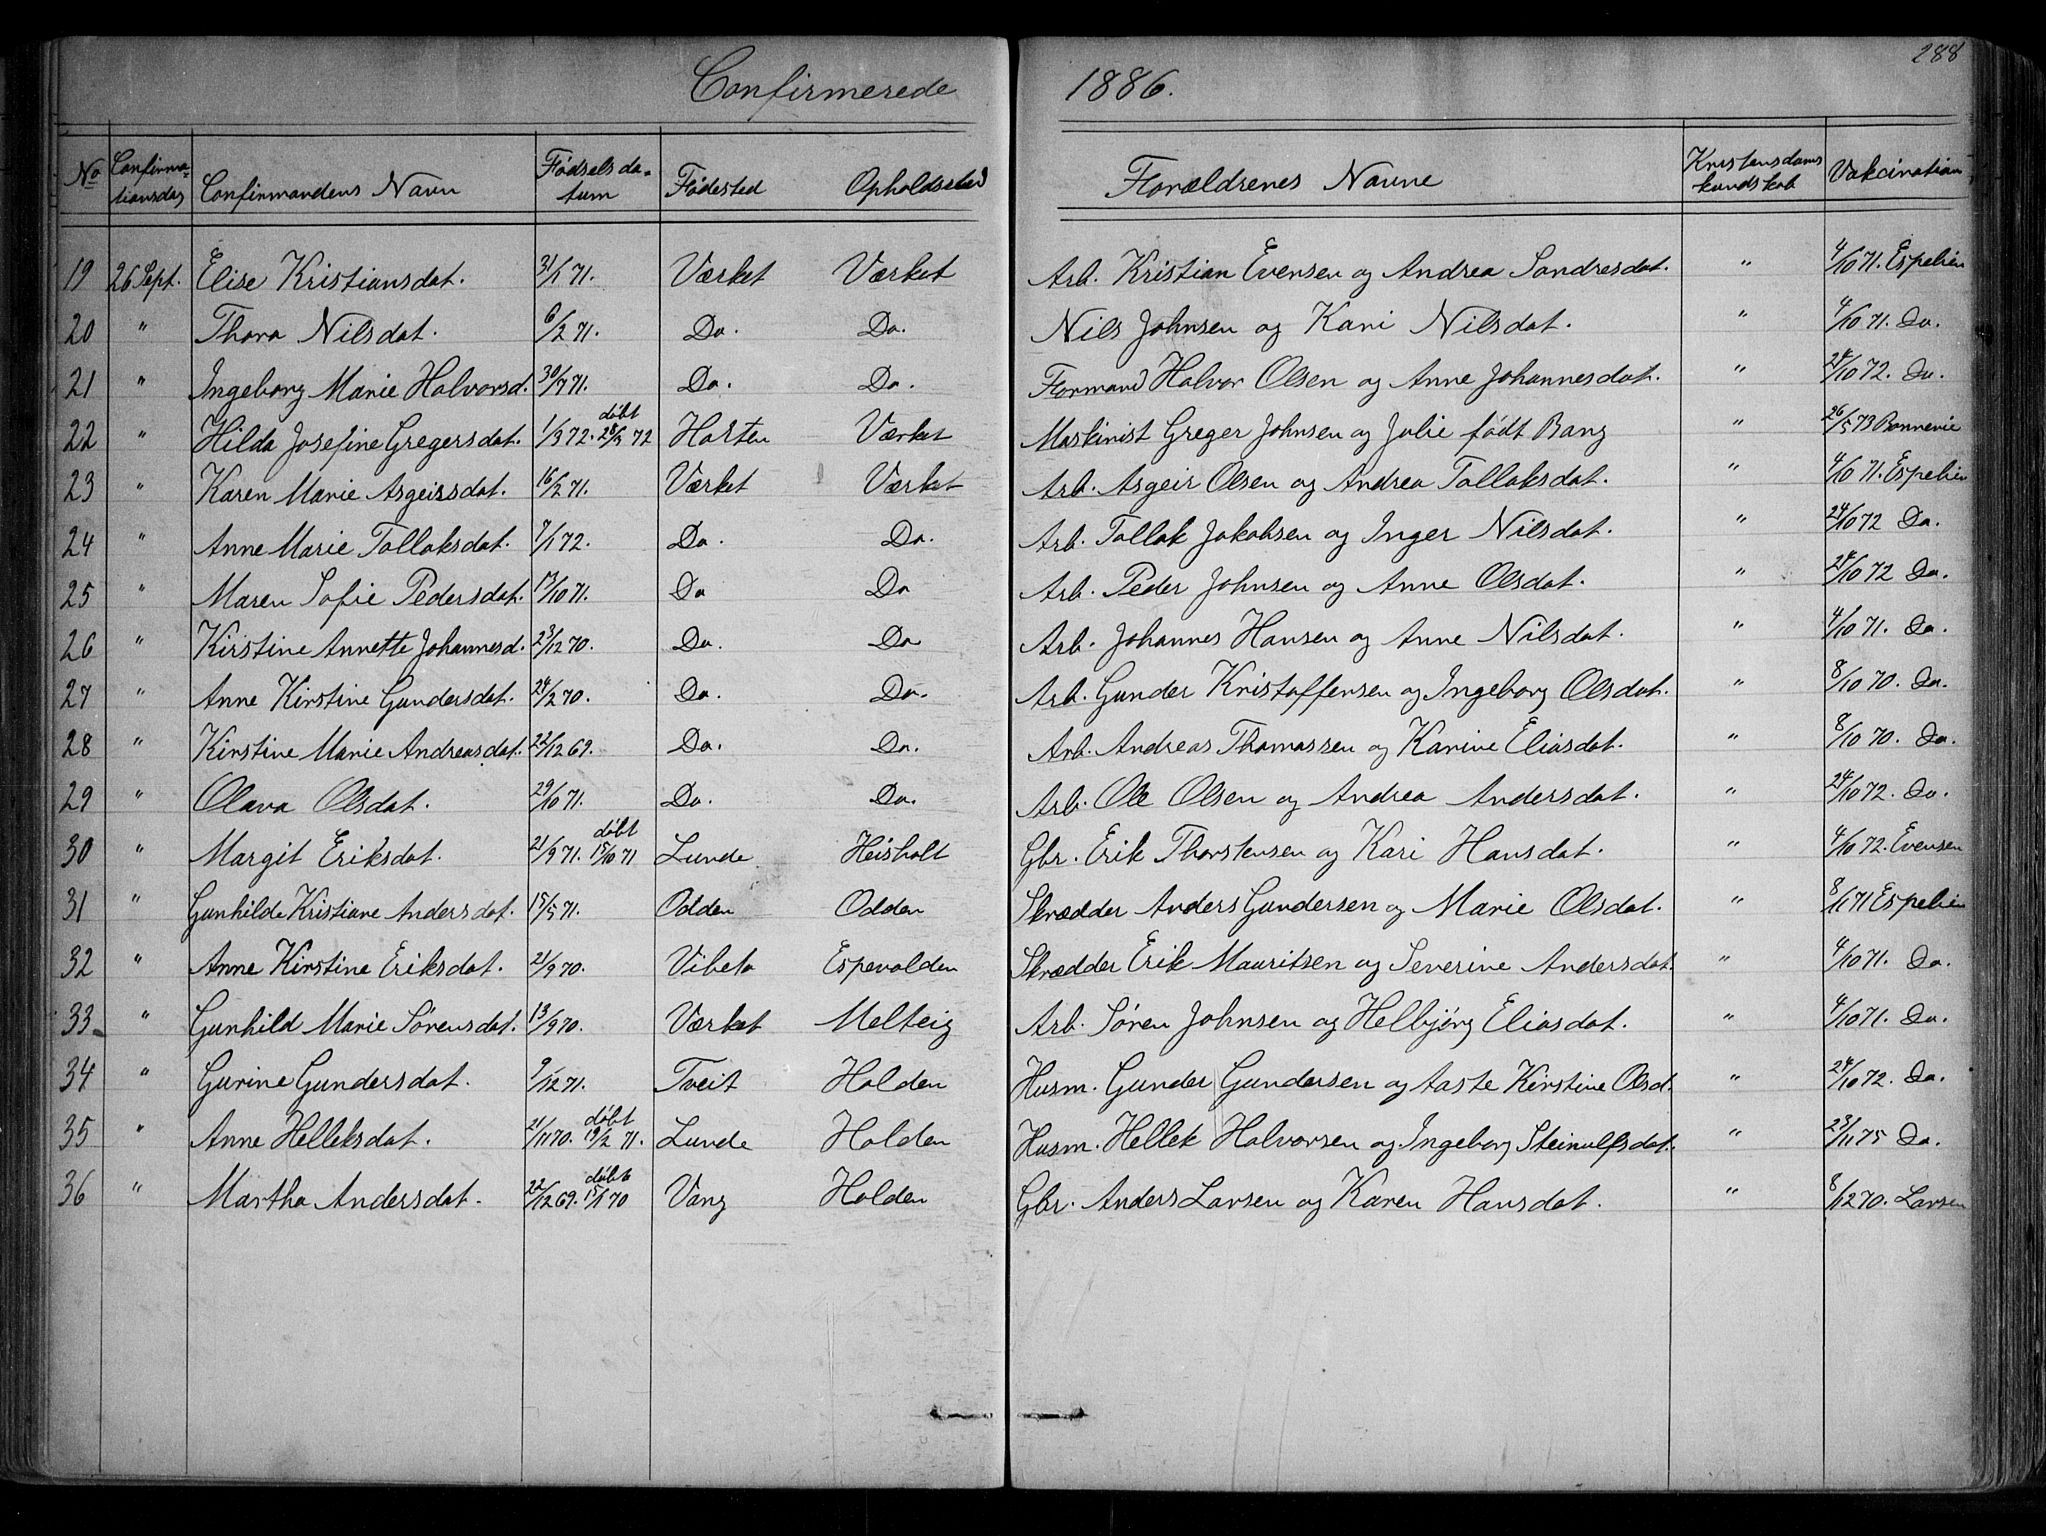 288
Confirmerede 1886.
No Confirmationsdag Confirmandens Navn Fødselsdatum Fødested Opholdssted Forældrenes Navne Kristendomskundskab Vakcination
19 26 Sept. Elise Kristiansdat. 31/1 71. Værket Værket Arb. Kristian Evensen og Andrea Sondresdat. " 4/10 71. Espelien
20 " Thora Nilsdat. 6/2 71. Do. Do. Nils Johnsen og Kari Nilsdat. " 4/10 71. Do.
21 " Ingeborg Marie Halvorsd. 30/7 71. Do. Do. Formand Halvor Olsen og Anne Johannesdat. " 24/10 72. Do.
22 " Hilda Josefine Gregersdat. 1/3 72. døbt 28/3 72 Horten Værket Maskinist Greger Johnsen og Julie født Bang " 26/5 73 Bonnevie
23 " Karen Marie Asgeirsdat. 16/2 71. Værket Værket Arb. Asgeir Olsen og Andrea Tollaksdat. " 4/10 71. Espelien
24 " Anne Marie Tollaksdat. 7/1 72. Do. Do. Arb. Tollak Jakobsen og Inger Nilsdat. " 24/10 72 Do.
25 " Maren Sofie Pedersdat. 17/10 71. Do Do Arb. Peder Johnsen og Anne Olsdat. " 24/10 72 Do.
26 " Kirstine Annette Johannesd. 23/12 70. Do. Do Arb. Johannes Hansen og Anne Nilsdat. " 4/10 71. Do.
27 " Anne Kirstine Gundersdat. 24/2 70. Do. Do. Arb. Gunder Kristoffersen og Ingeborg Olsdat. " 8/10 70. Do.
28 " Kirstine Marie Andreasdat. 22/12 69. Do. Do. Arb. Andreas Thomassen og Karine Eliasdat. " 8/10 70. Do.
29 " Olava Olsdat. 29/10 71. Do. Do. Arb. Ole Olsen og Andrea Andersdat. " 24/10 72. Do.
30 " Margit Eriksdat. 21/9 71. døbt 15/10 71 Lunde Heisholt Gbr. Erik Thorstensen og Kari Hansdat. " 4/10 72. Evensen
31 " Gunhilde Kristiane Andersdat. 15/5 71. Odden Odden Skrædder Anders Gundersen og Marie Olsdat. " 8/11 71 Espelien
32 " Anne Kirstine Eriksdat. 21/9 70. Vibeto Espevolden Skrædder Erik Mauritsen og Severine Andersdat. " 4/10 71. Do.
33 " Gunhild Marie Sørensdat. 13/9 70. Værket Melteig Arb. Søren Johnsen og Helbjørg Eliasdat. " 4/10 71. Do.
34 " Gurine Gundersdat. 9/12 71. Tveit Holden Husm. Gunder Gundersen og Aaste Kirstine Olsd. " 24/10 72. Do.
35 " Anne Helleksdat. 21/11 70. døbt 19/2 71. Lunde Holden Husm. Hellek Halvorsen og Ingeborg Steinulfsdat. " 23/11 75 Do.
36 " Martha Andersdat. 22/12 69. døbt 15/1 70 Vang Holden Gbr. Anders Larsen og Karen Hansdat. " 8/12 70. Larsen